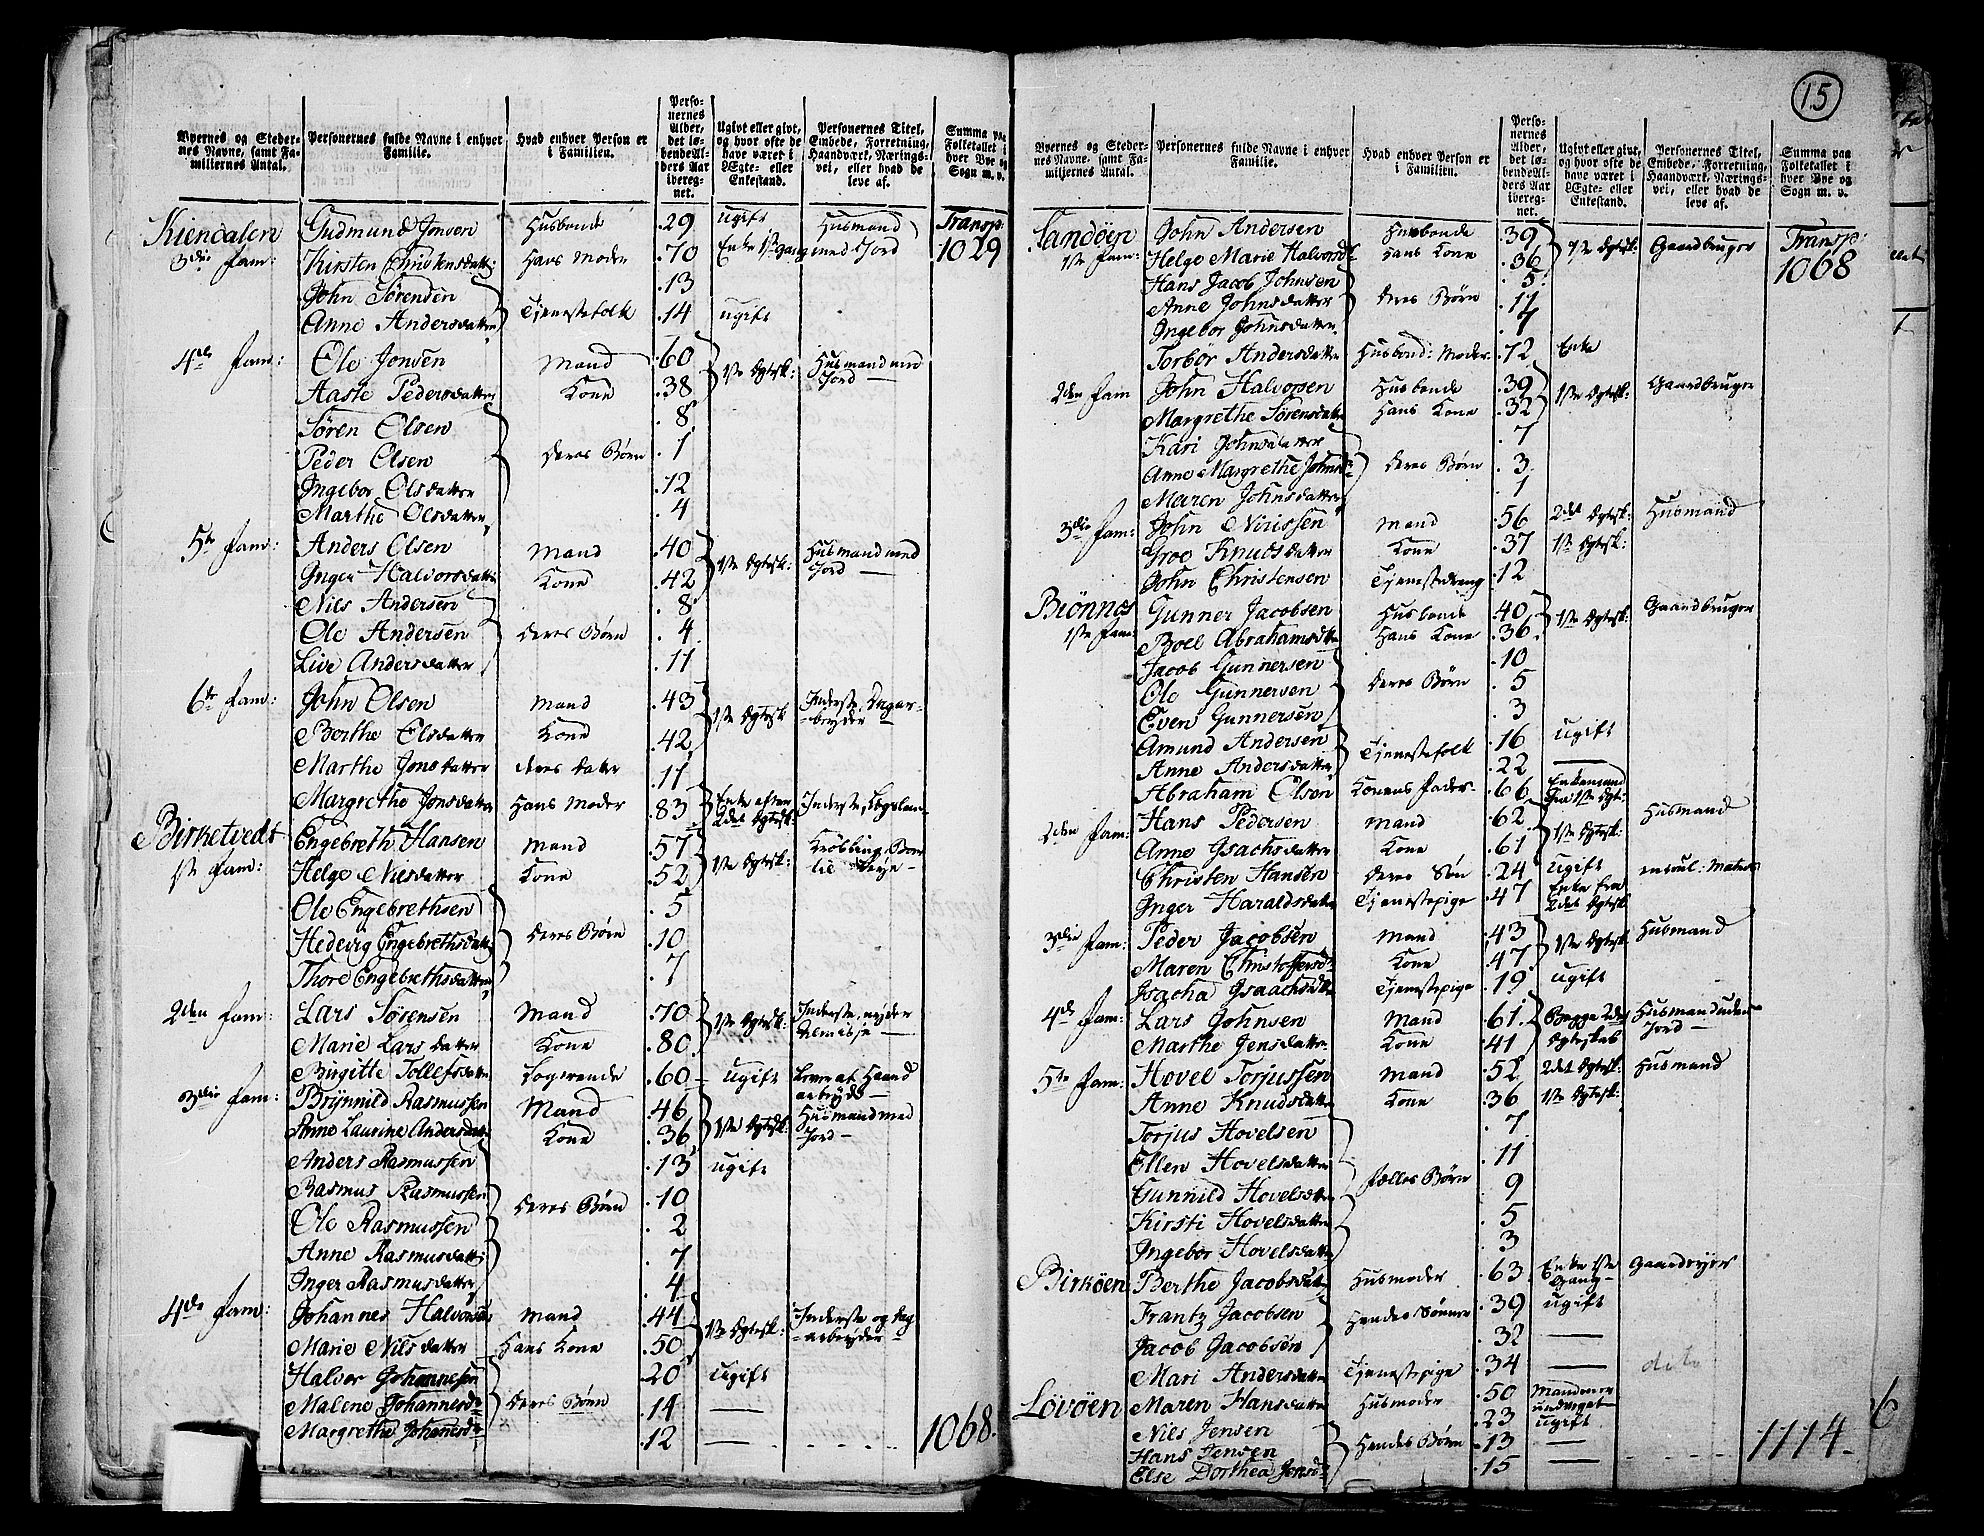 15
Byernes og Steder-
nes Navne, samt Fa-
miliernes Antal.
Personernes fulde Navne i enhver
Familie.
Hvad enhver Person er
i Familien.
Perso-
nernes
Alder,
det lø-
bende Al-
ders Aar
ibereg-
net.
Ugivt eller givt,
og hvor ofte de
have været i
Ægte- eller
Enkestand.
Personernes Titel,
Embede, Forretning,
Haandværk, Nærings-
vei, eller hvad de
leve af.
Summa paa
Folketallet i
hver Bye og
Sogn m. v.
Kiendalen Gudmund Jonson Husbonde 29 ugift Husmand Transp:
3die Fam: Kirsten Christensdatt: Hans Moder 70 Enke 1ste gang med Jord 1029
John Sørensen 13
Anne Andersdatter Tjenestefolk 14 ugift
4de Fam: Ole Jonsen Mand 60 1ste Egtesk: Husmand med
Aaste Pedersdatter Kone 38 Jord
Søren Olsen 8
Peder Olsen Deres Børn 1
Ingebor Olsdatter 12
Marthe Olsdatter 4
5te Fam: Anders Olsen Mand 40 1ste Egtesk: Husmand med
Inger Halvorsdatter Kone 42 Jord
Nils Andersen 8
Ole Andersen Deres Børn 4
Live Andersdatter 11
6te Fam: John Olsen Mand 43 1ste Egtesk Inderste, Dagar-
Berthe Olsdatter Kone 42 beyder
Marthe Jonsdatter deres datter 11
Margrethe Jonsdatter Hans Moder 83 Enke efter 2det Egtesk:
Birketvedt Engebreth Hansen Mand 57 1ste Egtesk:
1ste Fam: Helge Nilsdatter Kone 52
Ole Engebrethsen 5
Hedevig Engebrethsdatter Deres Børn 10
Thore Engebrethsdatter 7
2den Fam: Lars Sørensen Mand 70 1ste Egtesk: Inderste, nyder
Marie Larsdatter Kone 80 Almisse
Birgitte Tollefsdatter Logerende 60 ugift Lever af Haand
arbeyde
3die Fam: Brynnild Rasmussen Mand 46 1ste Egtesk: Husmand med
Anne Laurine Andersdatter Kone 36 Jord
Anders Rasmussen 13 ugift
Rasmus Rasmussen Deres Børn 10
Ole Rasmussen 2
Anne Rasmusdatt: 7
Inger Rasmusdatter 4
4de Fam: Johannes Halvorsen Mand 44 1ste Egtesk: Inderste og dag
Marie Nilsdatter Hans Kone 50 arbeyder
Halvor Johannesen 20 ugift
Malene Johannesd: Deres Børn 14 —
Margrethe Johannesd: 12 — 1068.
Byernes og Steder-
nes Navne, samt Fa-
miliernes Antal.
Personernes fulde Navne i enhver
Familie.
Hvad enhver Person er
i Familien.
Perso-
nernes
Alder,
det lø-
bende Al-
ders Aar
ibereg-
net.
Ugivt eller givt,
og hvor ofte de
have været i
Ægte- eller
Enkestand.
Personernes Titel,
Embede, Forretning,
Haandværk, Nærings-
vei, eller hvad de
leve af.
Summa paa
Folketallet i
hver Bye og
Sogn m. v.
Sandöen John Andersen Husbonde 39 1ste Egtesk: Gaardbruger Transp:
1ste Fam: Helge Marie Halvorsd: Hans Kone 36 1068
Hans Jacob Johnsen 5
Anne Johnsdatter Deres Børn 11
Ingebor Johnsdatter
Torbör Andersdatter Husbond: Moder 72 Enke
2den Fam John Halvorsen Husbonde 39 1ste Egtesk: Gaardbruger
Margrethe Sørensdatter Hans Kone 32
Kari Johnsdatter 7
Anne Margrethe Johnsd: Deres Børn 3
Maren Johnsdatter 1
3die Fam: John Nirissen Mand 56 2det Egtesk: Husmand
Groe Knudsdatter Kone 37 1ste Egtesk:
John Christensen Tjenestedreng 12
Biönnes Gunner Jacobsen Husbonde 40 1ste Egtesk: Gaardbruger
1ste Fam: Boel Abrahamsdtr Hans Kone 36
Jacob Gunnersen 10
Ole Gunnersen Deres Børn 5
Even Gunnersen 3
Amund Andersen Tjenestefolk 16 ugift
Anne Andersdatter 22 —
Abraham Olsen Konens Fader 66 Enkemand
fra 1ste Egt:
2den Fam: Hans Pedersen Mand 62 1ste Egtesk: Husmand
Anne Isachsdatter Kone 61
Christen Hansen Deres Søn 24 ugift
Inger Haraldsdatter Tjenestepige 47 Enke fra
2det Egtesk
3die Fam: Peder Jacobsen Mand 43 1ste Egtesk Husmand
Maren Christoffersd: Kone 47
Isacha Isaachsdtr Tjenestepige 19 ugift
4de Fam: Lars Johnsen Mand 61 Begge 2det Husmand uden
Marthe Jensdatter Kone 41 Egteskab Jord
5te Fam: Hovel Torjussen Mand 52 2det Egtesk: Husmand
Anne Knudsdatter Kone 36 1ste Egtesk:
Torjus Hovelsen 7
Ellen Hovelsdatter 11
Gunnild Hovelsdatter Fælles Børn 9
Kirsti Hovelsdatter 5
Ingebor Hovelsdatter 3
Birköen Berthe Jacobsdatter Husmoder 63 Enke 1ste
Gang
Frantz Jacobsen Hendes Sønner 39 ugift
Jacob Jacobsen 32 —
Mari Andersdatter Tjenestepige 34 — dito
Lövöen Maren Hansdatter Husmoder 50
Nils Jensen 23 ugift
Hans Jensen Hendes Børn 13 —
Else Dorthea Jensd: 15 1114